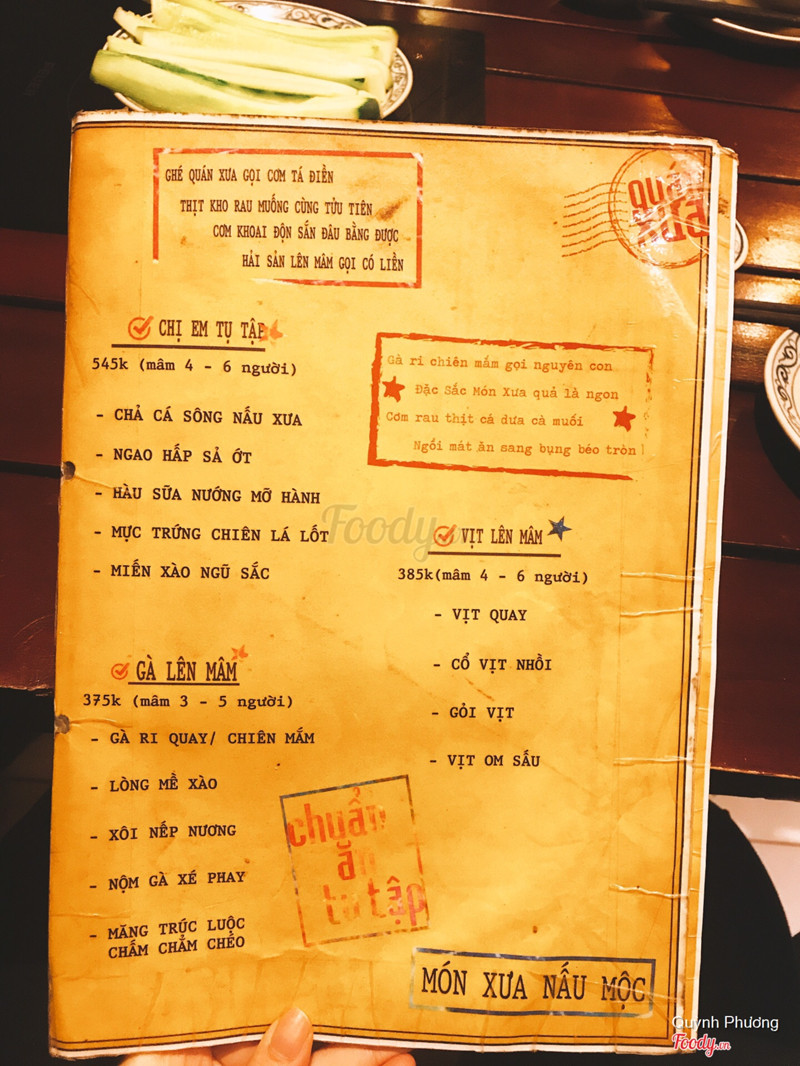 GHÉ QUÁN XƯA GỌI CƠM TÁ ĐIỀN
THỊT KHO RAU MUỐNG CÙNG TỬU TIÊN
CƠM KHOAI ĐỘN SẮN ĐÂU BẰNG ĐƯỢC
HẢI SẢN LÊN MÂM GỌI CÓ LIỀN
quán
xưa
CHỊ EM TỤ TẬP
545k (mâm 4 - 6 người)
- CHẢ CÁ SÔNG NẤU XƯA
- NGAO HẤP SẢ ỚT
- HÀU SỮA NƯỚNG MỠ HÀNH
- MỰC TRỨNG CHIÊN LÁ LỐT
- MIẾN XÀO NGŨ SẮC
Gà ri chiên mắm gọi nguyên con
Đặc Sắc Món Xưa quả là ngon
Cơm rau thịt cá dưa cà muối
Ngồi mát ăn sang bụng béo tròn
VỊT LÊN MÂM
385k(mâm 4 - 6 người)
- VỊT QUAY
- CỔ VỊT NHỒI
- GỎI VỊT
- VỊT OM SẤU
GÀ LÊN MÂM
375k (mâm 3 - 5 người)
- GÀ RI QUAY/ CHIÊN MẮM
- LÒNG MỀ XÀO
- XÔI NẾP NƯƠNG
- NỘM GÀ XÉ PHAY
- MĂNG TRÚC LUỘC
CHẤM CHẲM CHÉO
chuẩn
ăn
tụ tập
MÓN XƯA NẤU MỘC
Foody
Quỳnh Phương
Foody.vn